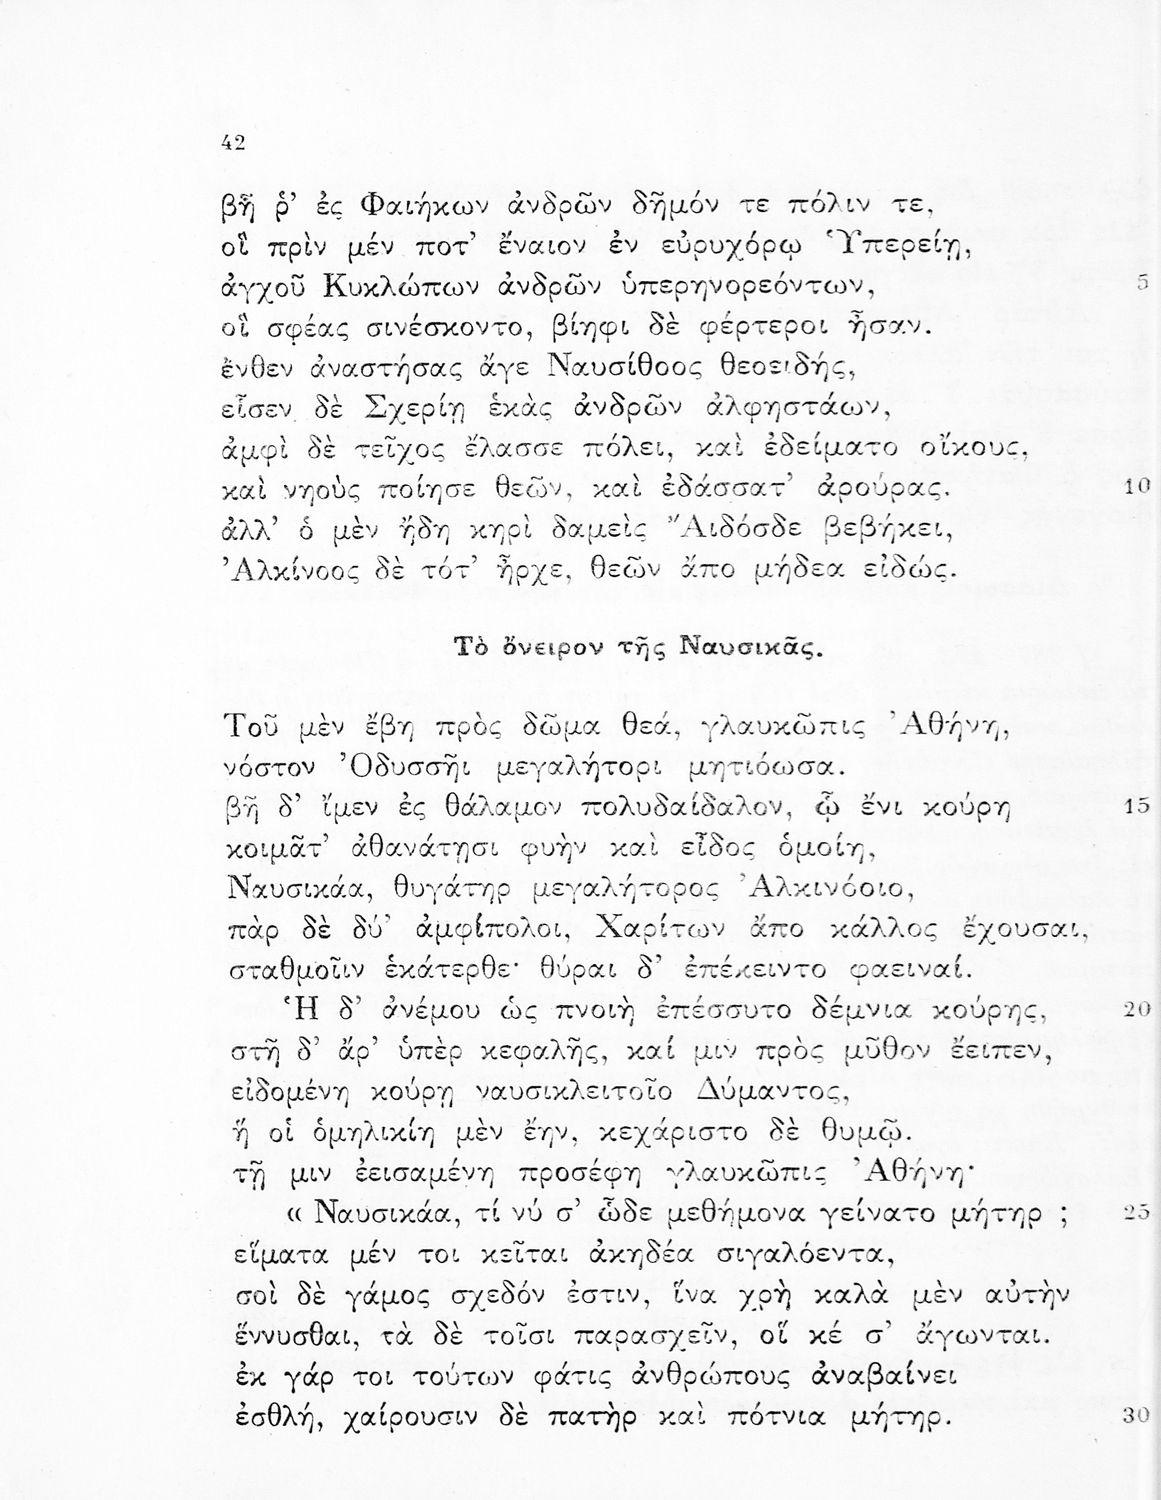 42
βῆ ῥ’ ἐς Φαιήκων ἀνδρῶν δῆμόν τε πόλιν τε,
οἳ πρὶν μέν ποτ’ ἔναιον ἐν εὐρυχόρῳ Ὑπερείῃ,
ἀγχοῦ Κυκλώπων ἀνδρῶν ὑπερηνορεόντων, 5
οἵ σφέας σινέσκοντο, βίηφι δὲ φέρτεροι ἦσαν.
ἔνθεν ἀναστήσας ἄγε Ναυσίθοος θεοειδής,
εἷσεν δὲ Σχερίῃ ἑκὰς ἀνδρῶν ἀλφηστάων,
ἀμφὶ δὲ τεῖχος ἔλασσε πόλει, καὶ ἐδείματο οἴκους,
καὶ νηοὺς ποίησε θεῶν, καὶ ἐδάσσατ’ ἀρούρας. 10
ἀλλ’ ὁ μὲν ἤδη κηρὶ δαμεὶς Ἄιδόσδε βεβήκει,
Ἀλκίνοος δὲ τότ’ ἦρχε, θεῶν ἄπο μήδεα εἰδώς.
Τὸ ὄνειρον τῆς Ναυσικᾶς.
Τοῦ μὲν ἔβη πρὸς δῶμα θεά, γλαυκῶπις Ἀθήνη,
νόστον Ὀδυσσῆι μεγαλήτορι μητιόωσα.
βῆ δ’ ἴμεν ἐς θάλαμον πολυδαίδαλον, ᾧ ἔνι κούρη 15
κοιμᾶτ’ ἀθανάτῃσι φυὴν καὶ εἶδος ὁμοίη,
Ναυσικάα, θυγάτηρ μεγαλήτορος Ἀλκινόοιο,
πὰρ δὲ δύ’ ἀμφίπολοι, Χαρίτων ἄπο κάλλος ἔχουσαι,
σταθμοῖιν ἑκάτερθε· θύραι δ’ ἐπέκειντο φαειναί.
Ἡ δ’ ἀνέμου ὡς πνοιὴ ἐπέσσυτο δέμνια κούρης, 20
στῆ δ’ ἄρ’ ὑπὲρ κεφαλῆς, καί μιν πρὸς μῦθον ἔειπεν,
εἰδομένη κούρῃ ναυσικλειτοῖο Δύμαντος,
ἥ οἱ ὁμηλικίη μὲν ἔην, κεχάριστο δὲ θυμῷ.
τῇ μιν ἐεισαμένη προσέφη γλαυκῶπις Ἀθήνη·
« Ναυσικάα, τί νύ σ’ ὧδε μεθήμονα γείνατο μήτηρ ; 25
εἵματα μέν τοι κεῖται ἀκηδέα σιγαλόεντα,
σοὶ δὲ γάμος σχεδόν ἐστιν, ἵνα χρὴ καλὰ μὲν αὐτὴν
ἕννυσθαι, τὰ δὲ τοῖσι παρασχεῖν, οἵ κέ σ’ ἄγωνται.
ἐκ γάρ τοι τούτων φάτις ἀνθρώπους ἀναβαίνει
ἐσθλή, χαίρουσιν δὲ πατὴρ καὶ πότνια μήτηρ. 30